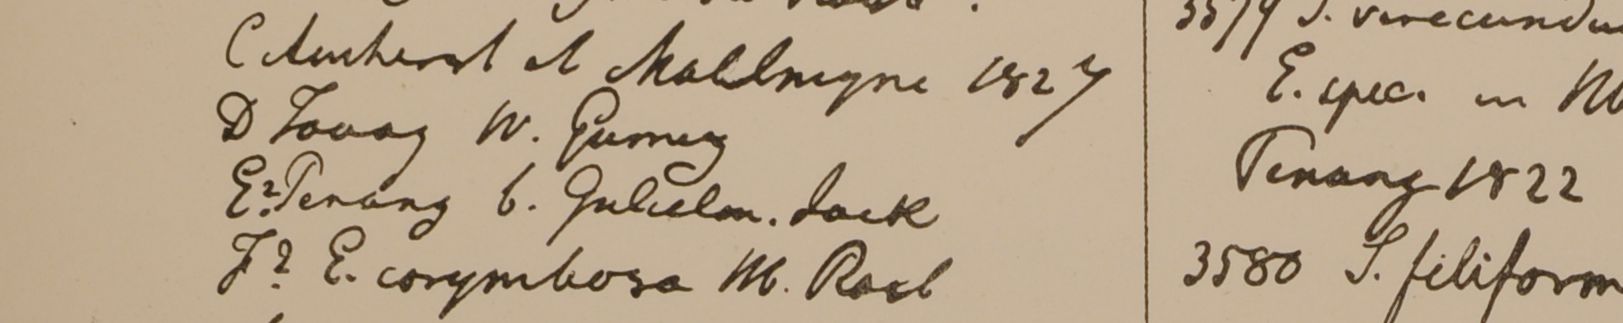 C Amherst et Moalmeyne 1827
D Tavoy W. Gomez
E? Penang b. Gulielm. Jack
F? E. corymbosa M. Roxb
3579 S. verecundu
E. spec. in M
Penang 1822
3580 S. filiform